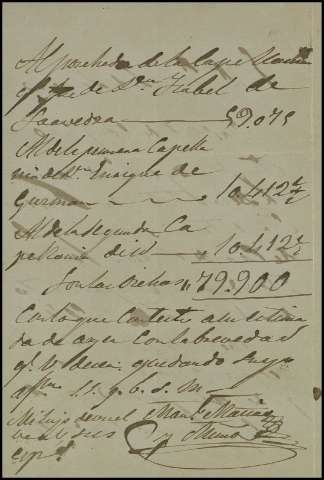 Al porchada de la Capellania
q fue de D.ña Isabel de
Saavedra 59.075
Al de la primera Capella
nia de D.n Enrique de
Guzman 10.412
Al de la segunda Ca
pellania di 10.412
Son los Dichos 79.900
Con lo que Contesto a su estima
da de ayer con la brevedad
q. V. desea, quedando suyo
aff.mo S.S. q. b. s. M.
Mi hijo Man.l Macias
y